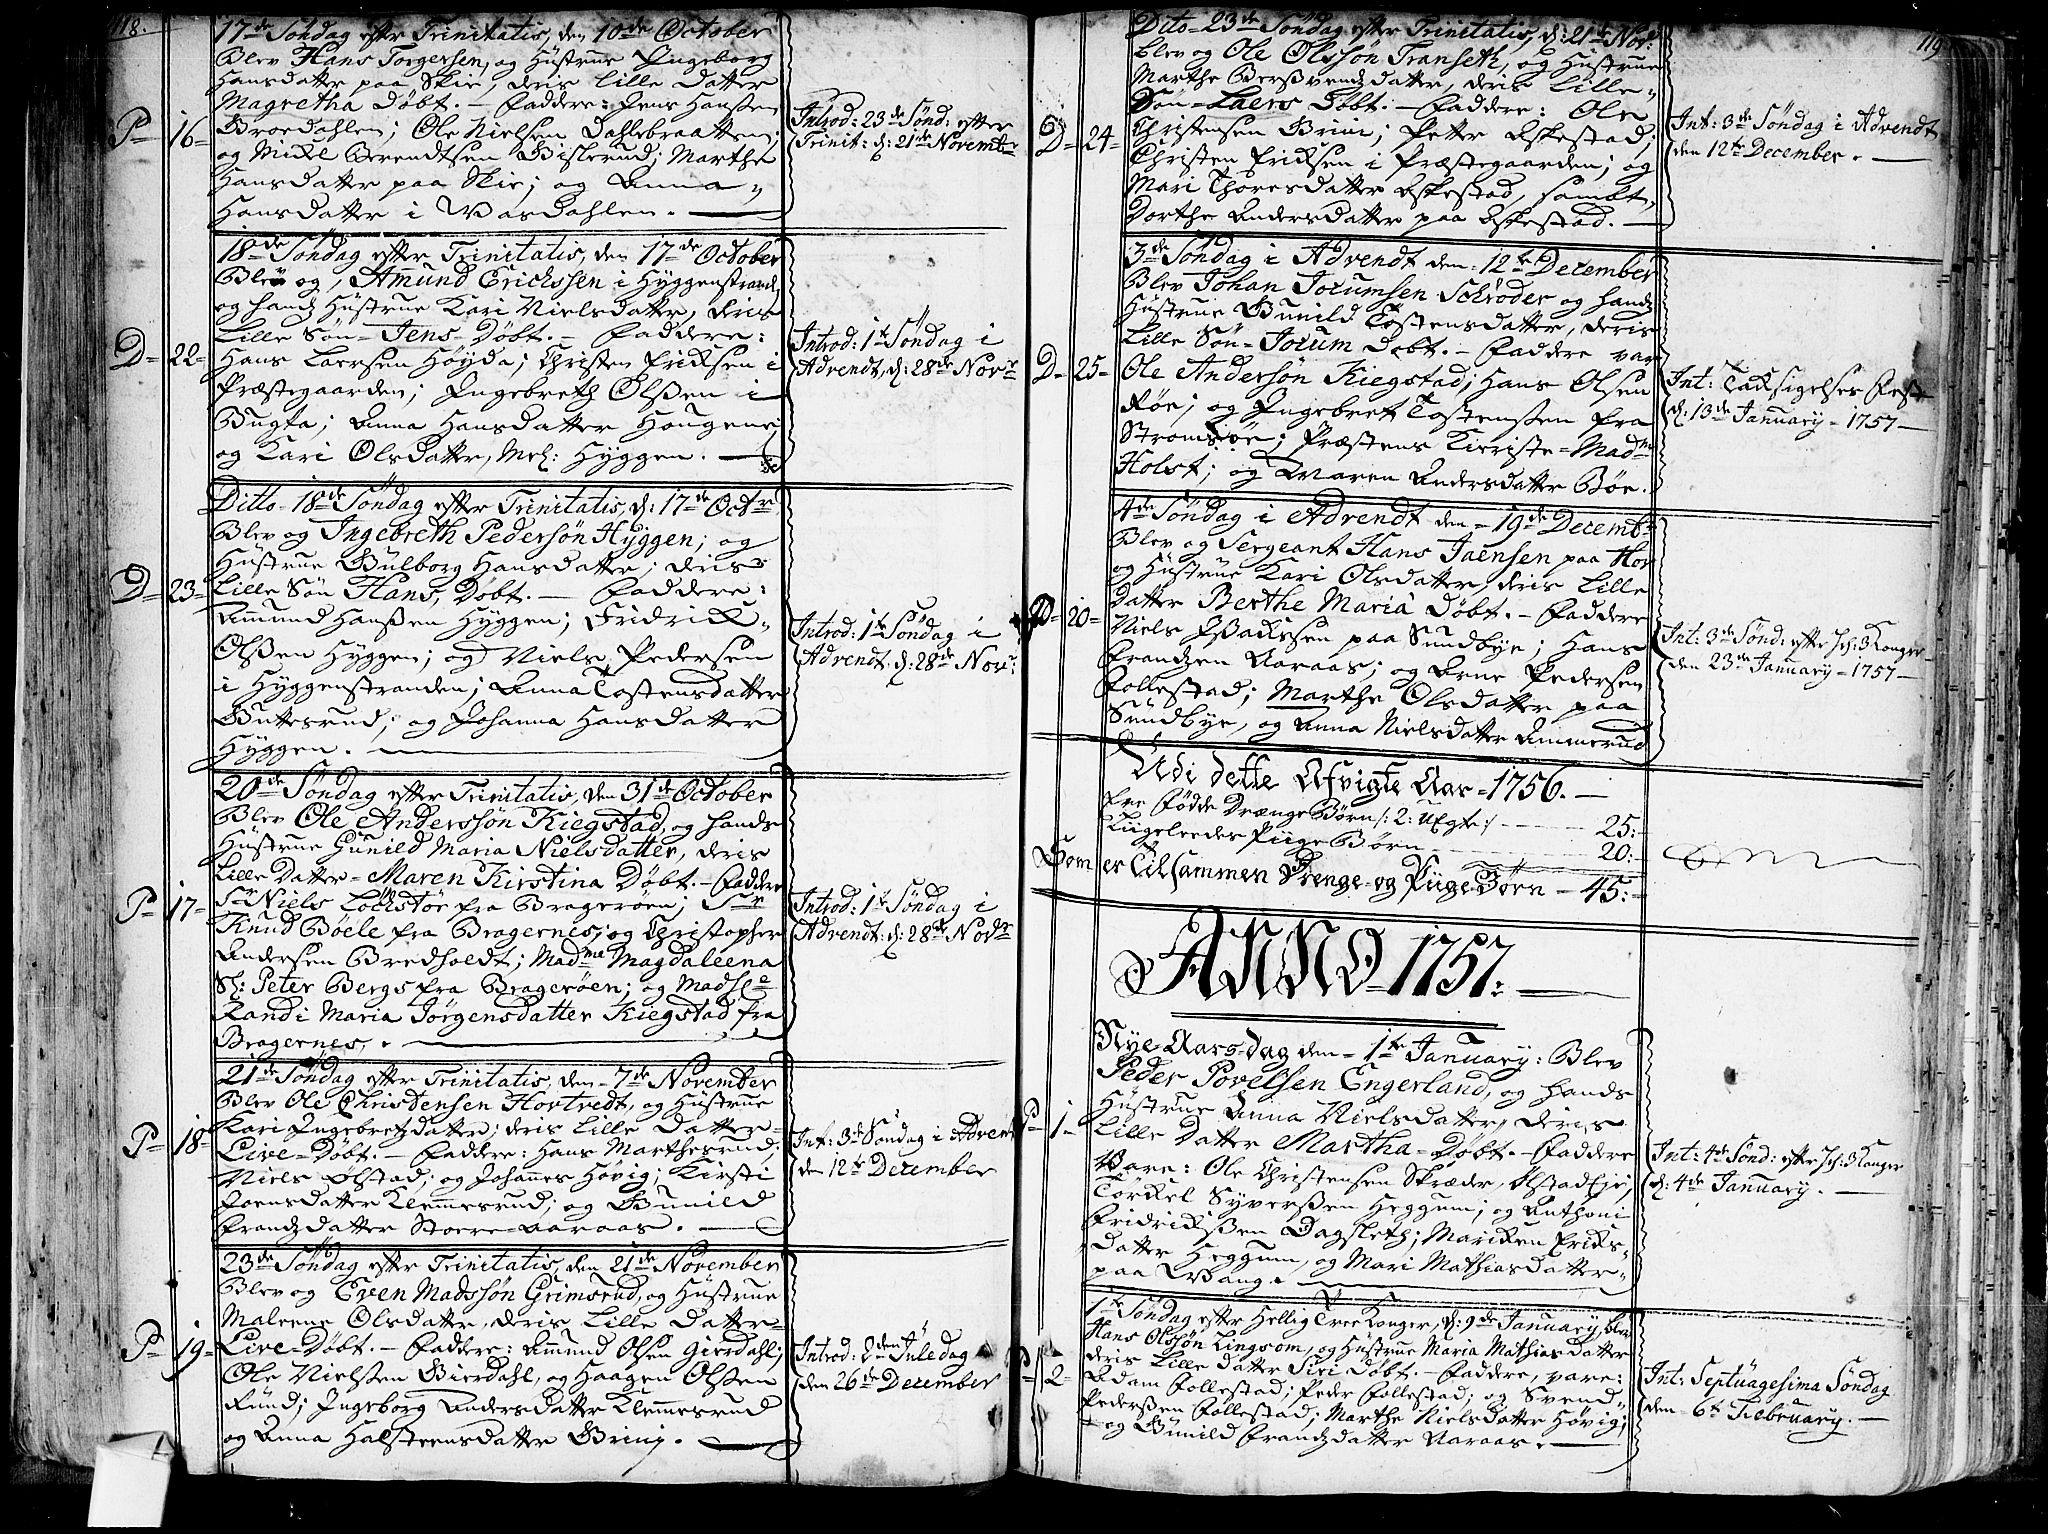 118.
17de Søndag efter Trinitatis, den 10de October
Blev Hans Torgersen, og Hustrue Ingeborg
Hansdatter paa Skie, deris Lille Datter
Magretha Døbt. — Faddere: Jens Hansen
P= 16= Broedahlen; Ole Nielsen Dahlebraatten;
og Mickel Berendtsen Bislerud; Marthe
Hansdatter paa Skie; og Anna
Hansdatter i Wasdahlen. —
Introd: 23de Sønd: efter
Trinit: d: 21de Novembr
18de Søndag efter Trinitatis, den 17de October
Blev og, Amund Erichssen i Hyggenstrand
og hands Hustrue Kari Nielsdatter, deris
Lille Søn = Jens = Døbt. — Faddere:
D= 22= Hans Larsen Høyda; Christen Ericksen i
Præstegaarden; Ingebreth Olssen i
Bugta; Anna Hansdatter Hougene
og Kari Olsdatter, Mel: Hyggen. —
Introd: 1te Søndag i
Advendt, d: 28de Novr
Ditto 18de Søndag efter Trinitatis, d: 17de Octr
Blev og Ingebreth Pedersøn Hyggen; og
Hustrue Gulborg Hansdatter; deris
D= 23= Lille Søn Hans, Døbt. — Faddere:
Amund Hanssen Hyggen; Fridrick
Olssen Hyggen; og Niels Pedersen
i Hyggenstranden; Anna Tostensdatter
Guttesrud; og Johanna Hansdatter
Hyggen. —
Introd: 1te Søndag i
Advendt d: 28de Novr:
20de Søndag efter Trinitatis, den 31de October
Blev Ole Anderssøn Kiegstad, og hands
Hustrue Gunild Maria Nielsdatter, deris
Lille Datter = Maren Kirstina Døbt. — Faddere
P= 17= Sr Niels Lockstør fra Bragerøen; Sr
Knud Bøele fra Bragernes, og Christopher
Andersen Bredholdt; Madme Magdaleena
Sl: Peter Bergs fra Bragerøen; og Madslle
Randi Maria Jørgensdatter Kiegstad fra
Bragernes. —
Introd: 1te Søndag i
Advendt: d: 28de Novr
21de Søndag efter Trinitatis, den 7de November
Blev Ole Christensen Hortvedt, og Hustrue
Kari Ingebretzdatter; deris Lille Datter
P= 18= Live = Døbt. — Faddere: Hans Marthesrud;
Niels Ølstad; og Johannes Høvig; Kirsti
Joensdatter Klemmesrud; og Gunild
Frandzdatter Stoere = Aaraas. —
Int: 3de Søndag i Advent
den 12te December
23de Søndag efter Trinitatis, den 21de November
Blev og Even Madssøn Grimsrud, og Hustrue
Maleene Olsdatter, deris Lille Datter
P= 19= Live = Døbt. — Faddere: Amund Olsen Gierdahl;
Ole Nielsen Gierdahl, og Haagen Olsen
Lund; Ingeborg Andersdatter Klemmesrud
og Anna Halsteensdatter Griny. —
Introd: 2den Juledag
den 26de December
119
Dito 23de Søndag efter Trinitatis, d: 21de Nov:
Blev og Ole Olssøn Transeth, og Hustrue
Marthe Bersvendzdatter, deris Lille
Søn = Laers Døbt. — Faddere: Ole
D= 24= Christensen Brini; Petter Askestad;
Christen Ericksen i Præstegaarden; og
Mari Thoresdatter Askestad, sambt,
Dorthe Andersdatter paa Askestad. —
Int: 3de Søndag i Advendt
den 12te December. —
3de Søndag i Advendt den: 12te December
Blev Johan Jocumsen Schrøder og hands
Hustrue Gunild Tostensdatter, deris
Lille Søn = Jocum Døbt. — Faddere var
D= 25= Ole Andersøn Kiegstad; Hans Olsen
Røe; og Ingebret Tostenssen fra
Stromsøe; Præstens Kieriste = Madme
Holst; og Maren Andersdatter Bøe.
Int: Tacksigelses Fest
d: 13de January = 1757 —
4de Søndag i Advendt den = 19de Decembr
Blev og Sergeant Hans Jaensen paa Hov
og Hustrue Kari Olsdatter, deris Lille
Datter Berthe Maria Døbt. — Faddere
P= 20= Niels Isackssen paa Sundbye; Hans
Frandzen Aaraas; og Arne Pedersen
Follestad; Marthe Olsdatter paa
Sundbye, og Anna Nielsdatter Ammerud
Int: 3de Sønd: efter H: 3 Konger
den 23de January = 1757 —
Udi dette Afvigte Aar = 1756. —
Ere Fødde Drænge Børn /: 2: Uægte :/ — 25: —
Liigeleedes Piige Børn — 20: —
Som er Tilsammen Drenge = og Piige Børn — 45: —
ANNO = 1757: —
Nye = Aars = dag den = 1te January: Blev
Peder Povelsen Engerland, og hands
Hustrue Anna Nielsdatter, deris
P= 1= Lille Datter Martha = Døbt. — Faddere
Vare: Ole Christensen Skræder, Ølstad Eje;
Torkel Syverssen Heggum; og Anthoni
Fridrickssen Dagsleth; Maricken Ericks
datter Heggum, og Mari Mathiasdatter
paa Wang. —
Int: 4de Sønd: efter H: 3 Konger
d: 4de January. —
1te Søndag efter Hellig Tree Konger, d: 9de January, blev
Hans Olssøn Lingsom, og Hustrue Maria Mathiasdatter
deris Lille Datter Siri Døbt. — Faddere, vare:
P= 2= Adam Follestad; Peder Follestad; og Svend
Pederssen Follestad; Marthe Nielsdatter Høvig;
og Gunild Frandzdatter Aaraas. —
Int: Septuagesima Søndag
den = 6te February. —